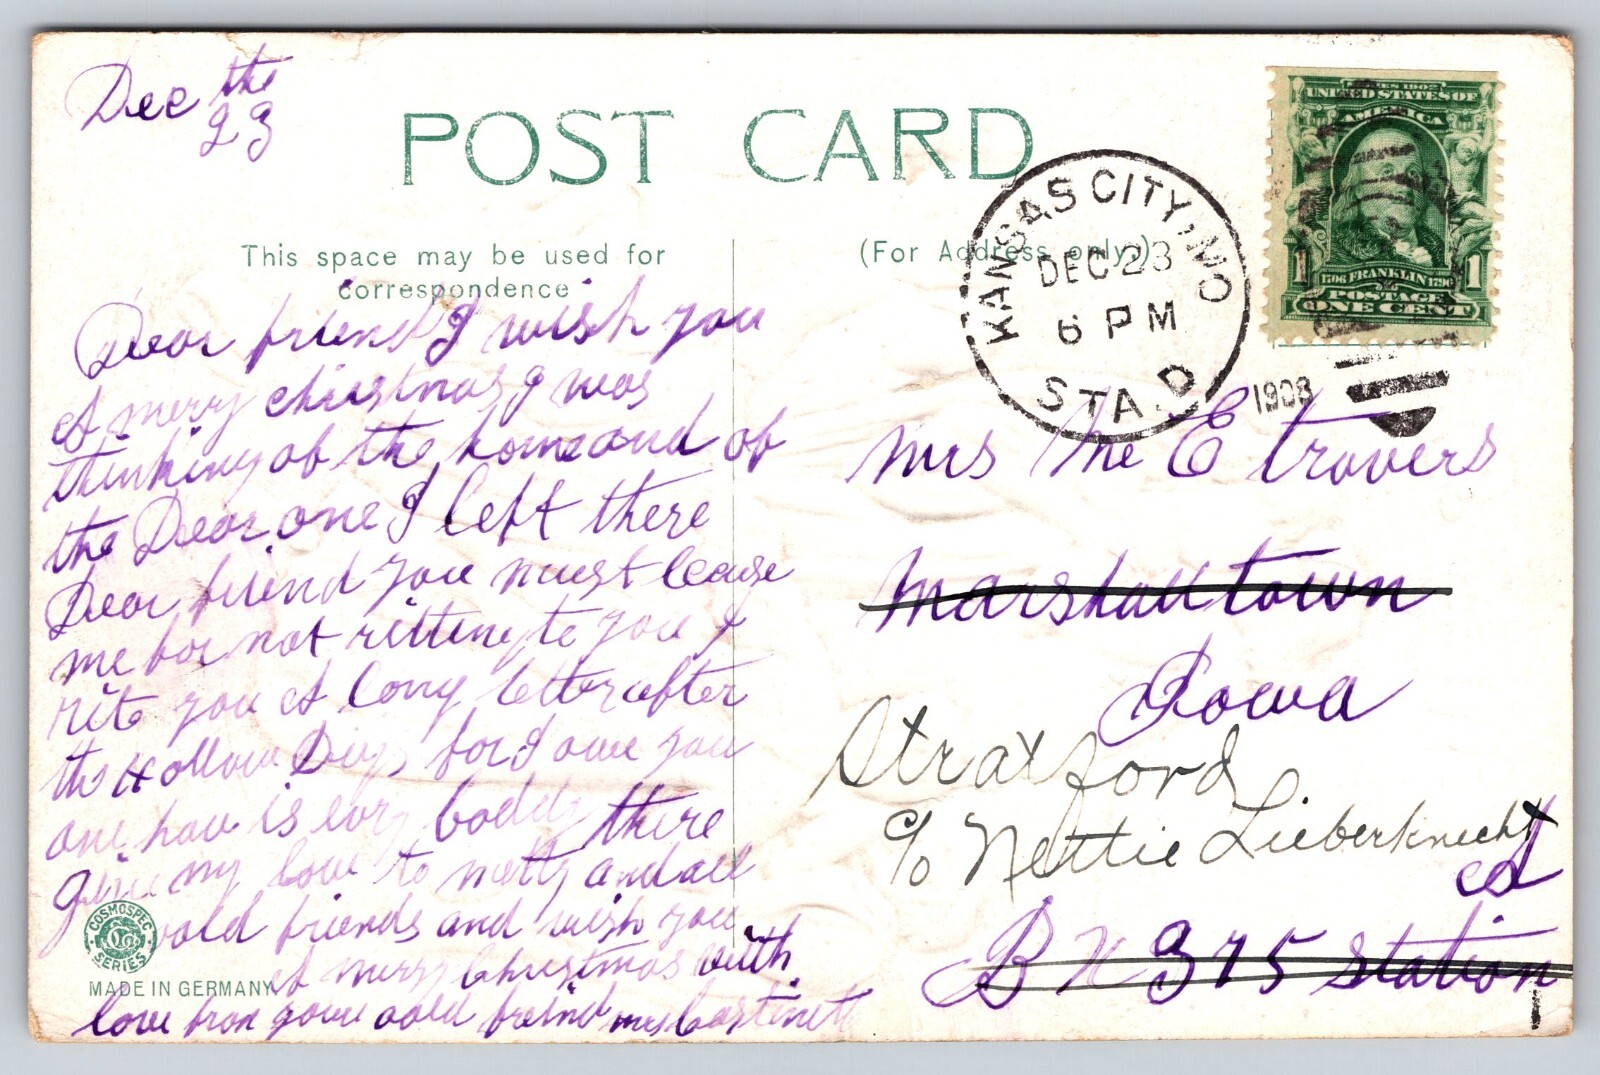 Dec the
23
POST CARD
This space may be used for
correspondence
(For Address only.)
KANSAS CITY, MO
DEC 23
6 PM
STA. D
1908
SERIES 1902
UNITED STATES OF
AMERICA
1706 FRANKLIN 1790
POSTAGE
1 ONE CENT 1
Dear friend I wish you
A merry christmas I was
thinking of the home and of
the Dear one I left there
Dear friend you must
me for not ritting to you I
rite you A long letter after
the Hollow Days for I owe you
one how is evry boddy there
give my love to netty and all
oold friends and wish you
A merry Christmas with
love from youre oold freind mrs
Mrs Mc E travers
Marshalltown
Iowa
Stratford
c/o Nettie Lieberknecht
B X 375 Station
A
COSMOSPEC
SERIES
MADE IN GERMANY